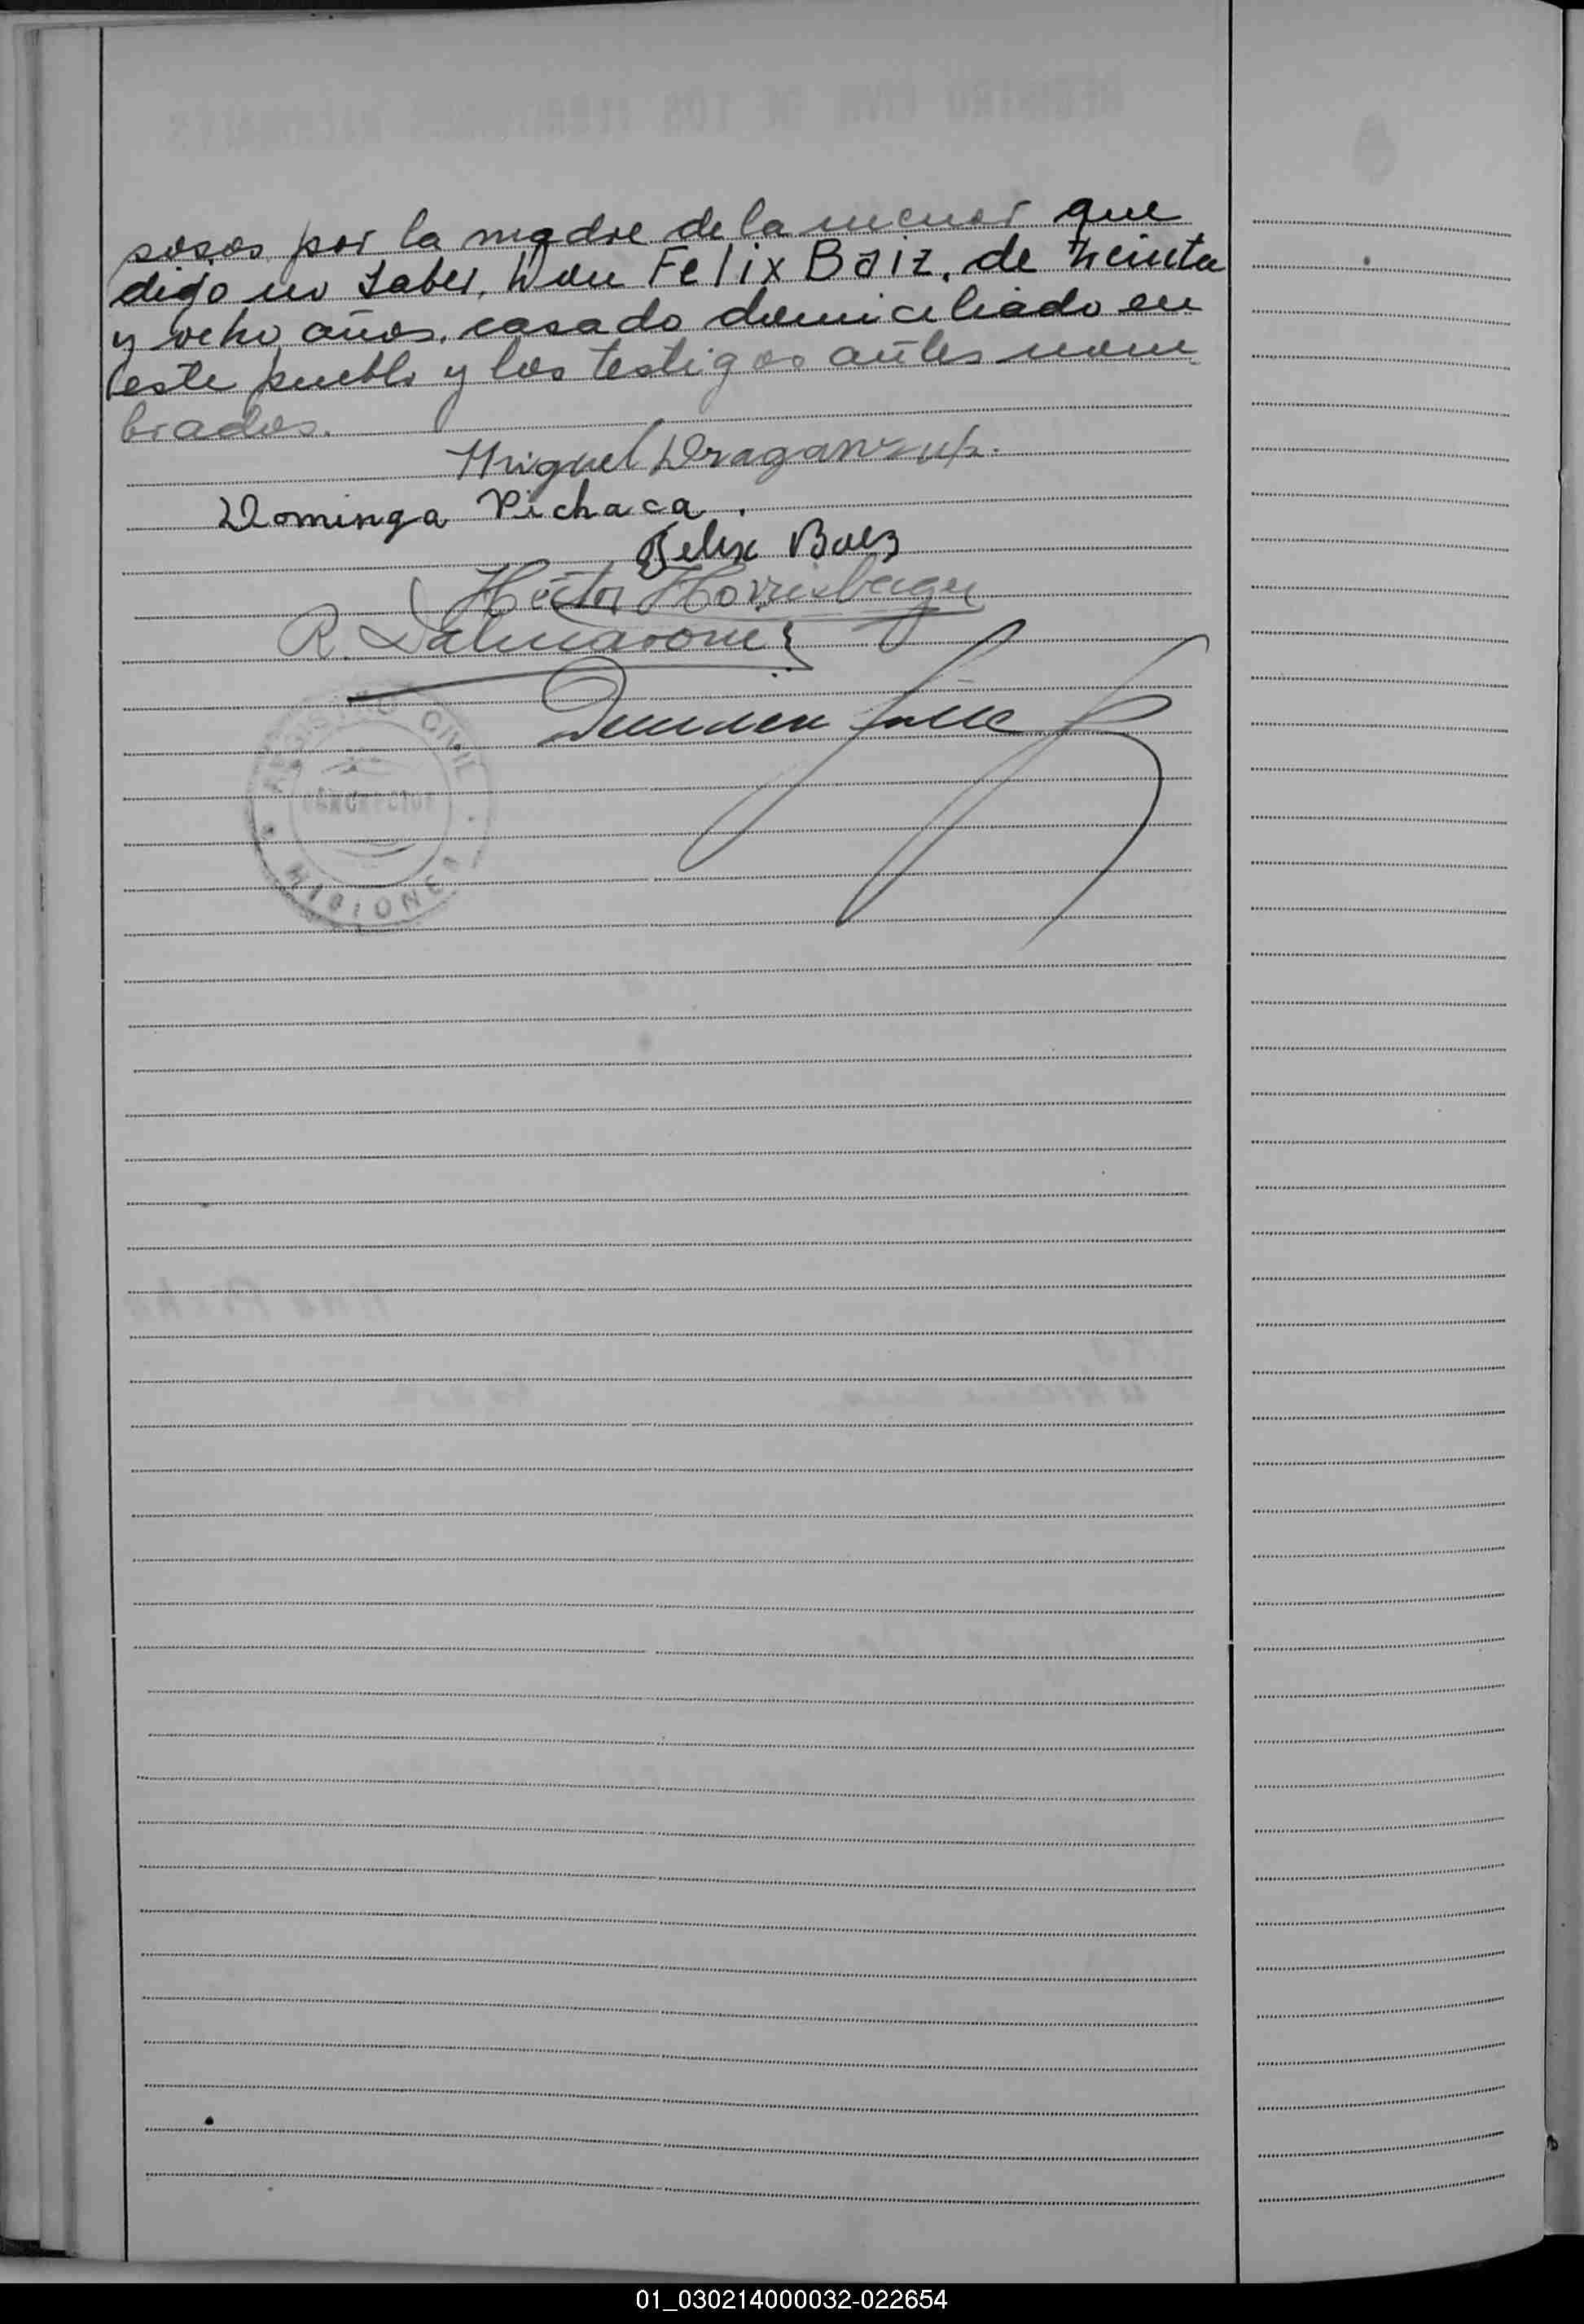 sosos por la madre de la menor que
dijo no saber, Don Felix Baiz, de treinta
y ocho años, casado domiciliado en
este pueblo y los testigos antes nom
brados.
Miguel
Dominga Pichaca.
Felix Baez
Héctor
R. Dalmaroni
REGISTRO CIVIL
CONCEPCION
MISIONES
01_030214000032-022654